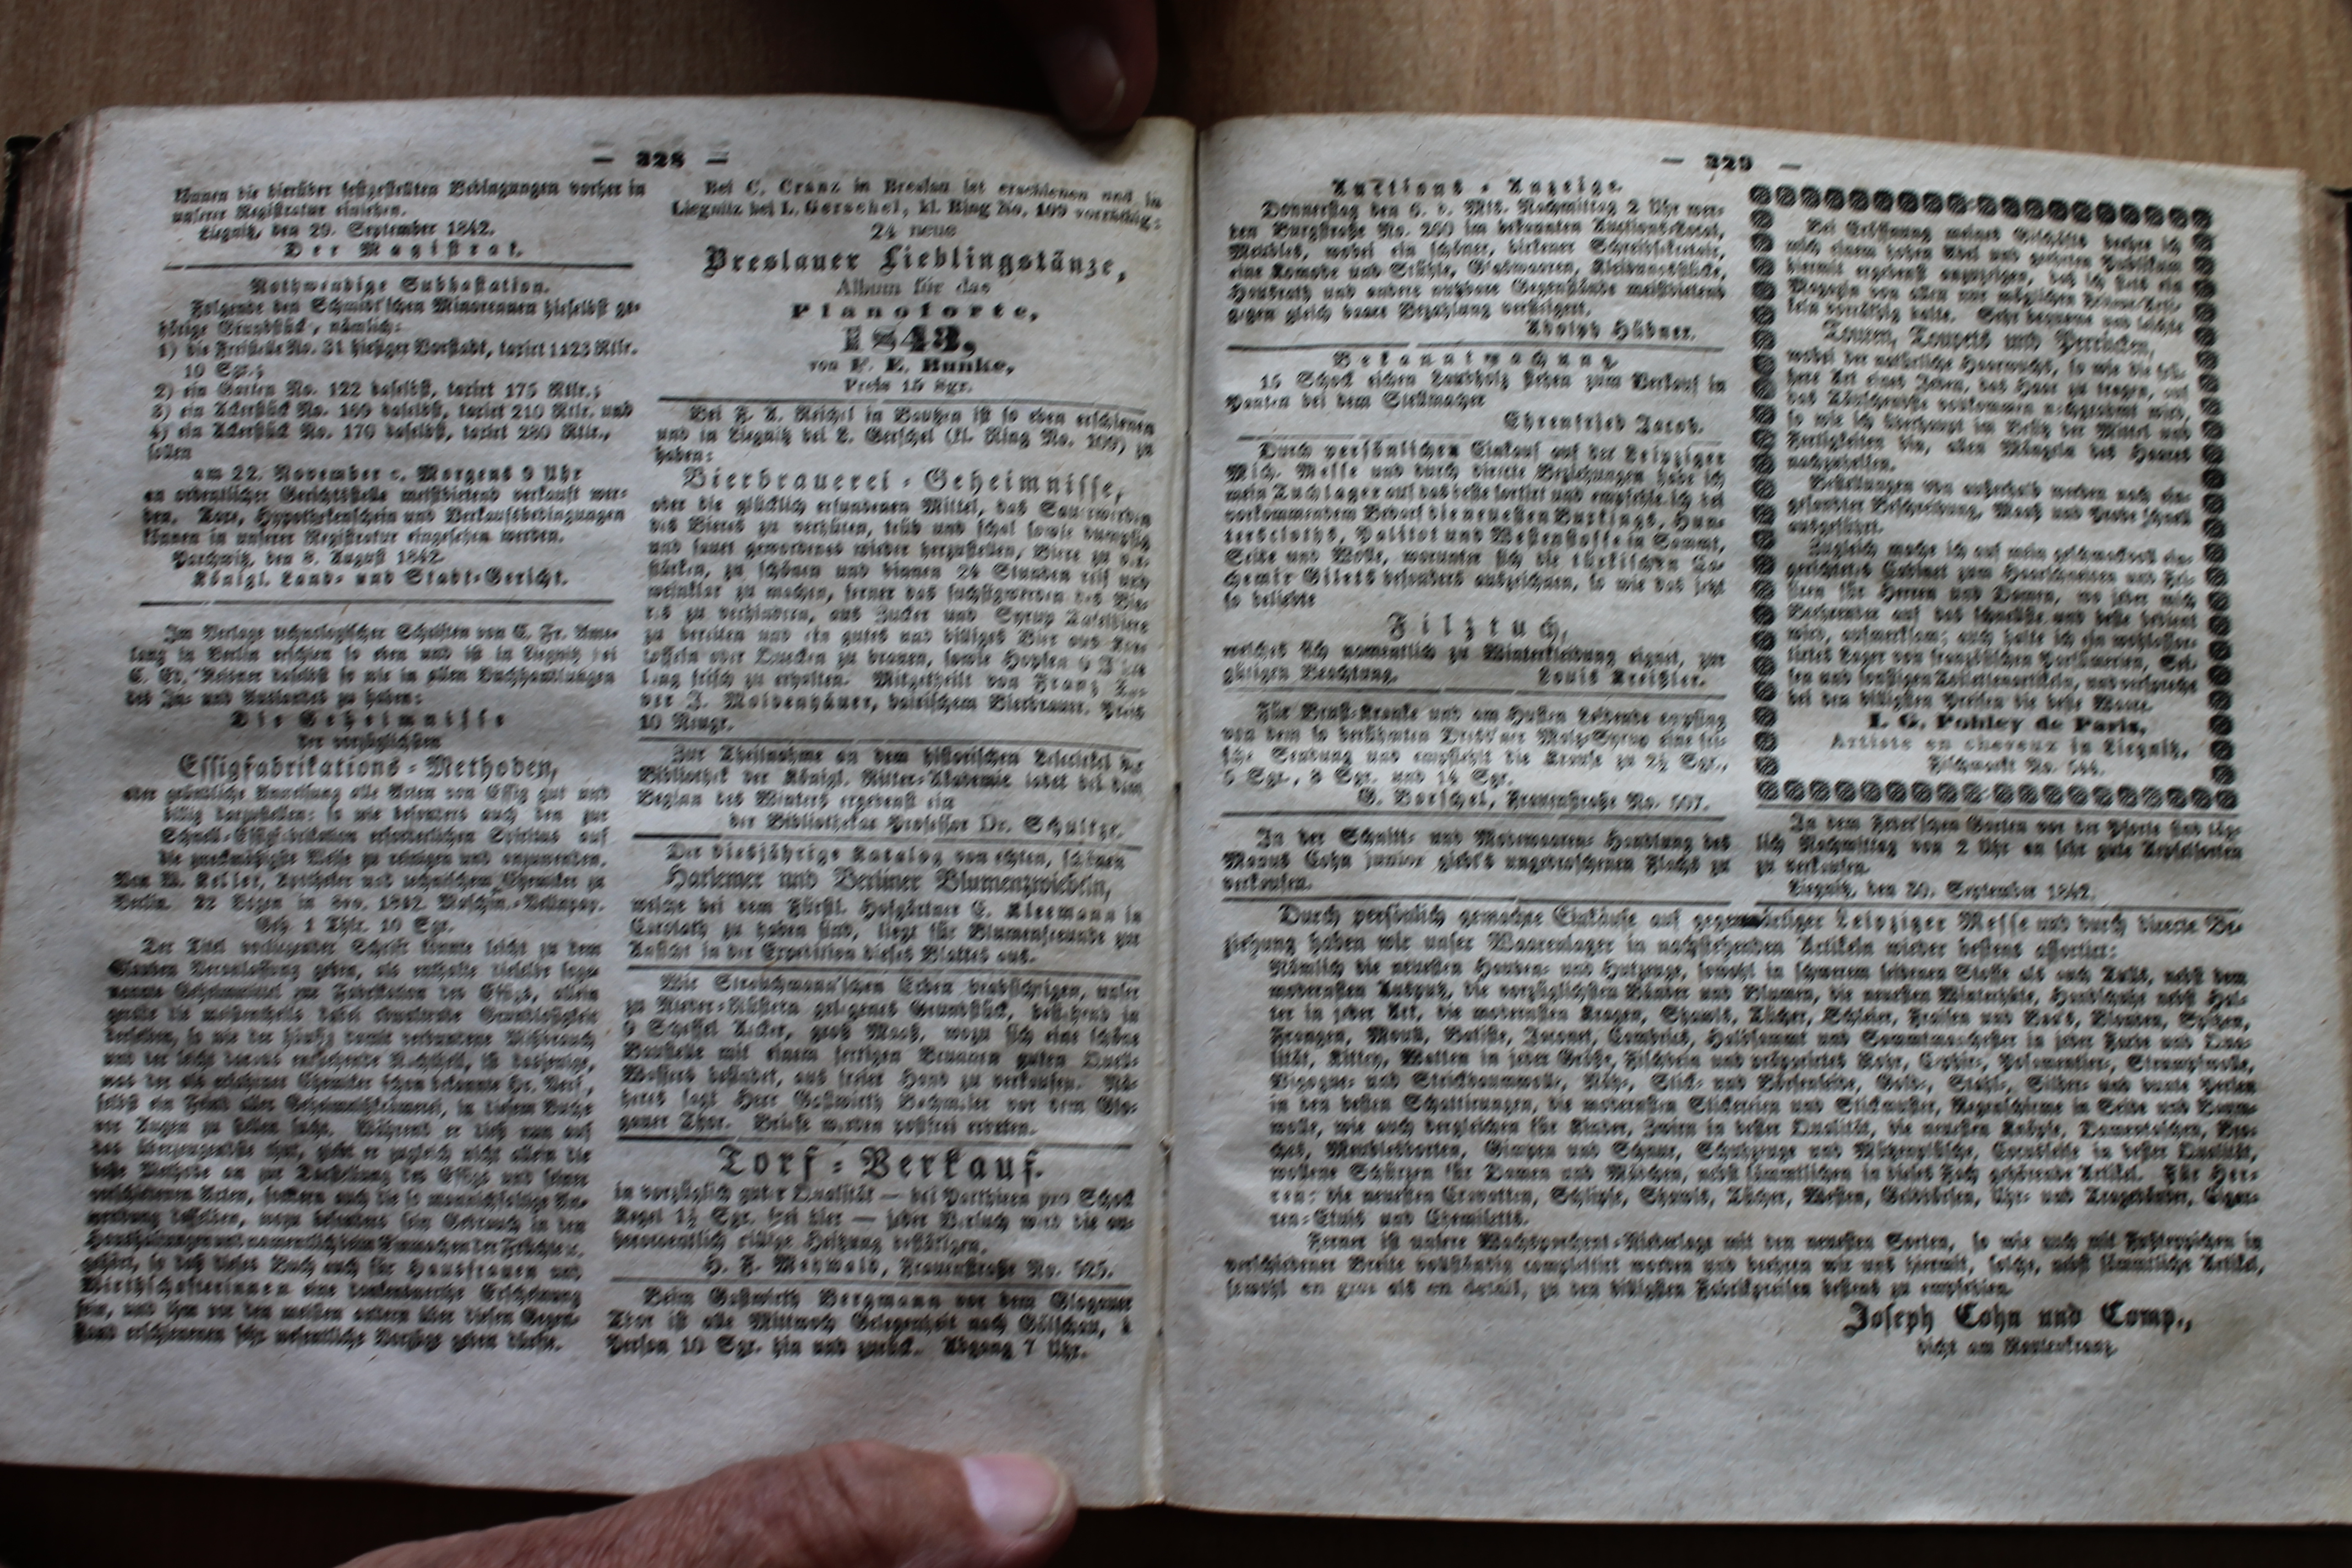 — 328 —
können die hierüber festgestellten Bedingungen vorher in
unserer Registratur einsehen.
Liegnitz, den 29. September 1842.
Der Magistrat.
Nothwendige Subhastation.
Folgende den Schmidt'schen Minorennen hieselbst ge-
hörige Grundstücke, nämlich:
1) die Freistelle No. 31 hiesiger Vorstadt, taxirt 1123 Rtlr.
10 Sgr.;
2) ein Garten No. 122 daselbst, taxirt 175 Rtlr.;
3) ein Ackerstück No. 169 daselbst, taxirt 210 Rtlr. und
4) ein Ackerstück No. 170 daselbst, taxirt 280 Rtlr.,
sollen
am 22. November c. Morgens 9 Uhr
an ordentlicher Gerichtsstelle meistbietend verkauft wer-
den. Taxe, Hypothekenschein und Verkaufsbedingungen
können in unserer Registratur eingesehen werden.
Parchwitz, den 8. August 1842.
Königl. Land- und Stadt-Gericht.
Im Verlage technologischer Schriften von C. Fr. Ame-
lang in Berlin erschien so eben und ist in Liegnitz bei
C. Ed. Reisner daselbst so wie in allen Buchhandlungen
des In- und Auslandes zu haben:
Die Geheimnisse
der vorzüglichsten
Essigfabrikations-Methoden,
oder gründliche Anweisung alle Arten von Essig gut und
billig darzustellen: so wie besonders auch den zur
Schnell-Essigfabrikation erforderlichen Spiritus auf
die zweckmäßigste Weise zu reinigen und anzuwenden.
Von W. Keller, Apotheker und technischem Chemiker zu
Berlin. 22 Bogen in 8vo. 1842. Maschin.-Velinpap.
Geh. 1 Thlr. 10 Sgr.
Der Titel vorliegender Schrift könnte leicht zu dem
Glauben Veranlassung geben, als enthalte dieselbe soge-
nannte Geheimmittel zur Fabrikation des Essigs, allein
gerade die meistentheils dabei
derselben, so wie der häufig damit verbundene Mißbrauch
und der leicht daraus entstehende Nachtheil, ist dasjenige,
was der als tüchtiger Chemiker schon bekannte Hr. Verf.,
selbst ein Feind aller Geheimnißkrämerei, in diesem Buche
vor Augen zu stellen sucht. Während er dieß nun auf
das überzeugendste thut, giebt er zugleich nicht allein die
beste Methode an zur Darstellung des Essigs und seiner
verschiedenen Arten, sondern auch die so mannichfaltige An-
wendung desselben, wozu besonders sein Gebrauch in den
Haushaltungen und namentlich beim Einmachen der Früchte ꝛc.
gehört, so daß dieses Buch auch für Hausfrauen und
Wirthschafterinnen eine dankenswerthe Erscheinung
sein, und ihm vor den meisten andern über diesen Gegen-
stand erschienenen sehr wesentliche Vorzüge geben dürfte.
Bei C. Cranz in Breslau ist erschienen und in
Liegnitz bei L. Gerschel, kl. Ring No. 109 vorräthig:
24 neue
Breslauer Lieblingstänze,
Album für das
Pianoforte,
1843,
von F. E. Bunke,
Preis 15 Sgr.
Bei F. A. Reichel in Bautzen ist so eben erschienen
und in Liegnitz bei L. Gerschel (kl. Ring No. 109) zu
haben:
Bierbrauerei-Geheimnisse,
oder die glücklich erfundenen Mittel, das Sauerwerden
des Bieres zu verhüten, trüb und schal sowie dumpfig
und sauer gewordenes wieder herzustellen, Biere zu ver-
stärken, zu schönen und binnen 24 Stunden reif und
weinklar zu machen, ferner das fuchsigwerden des Bie-
res zu verhindern, aus Zucker und Syrup Tafelbiere
zu bereiten und ein gutes und billiges Bier aus Kar-
toffeln oder Quecken zu brauen, sowie Hopfen 6 Jahre
lang frisch zu erhalten. Mitgetheilt von Franz Xa-
ver J. Moldenhäuer, bairischem Bierbrauer. Preis
10 Neugr.
Zur Theilnahme an dem historischen Lesecirkel der
Bibliothek der Königl. Ritter-Akademie ladet bei dem
Beginn des Winters ergebenst ein
der Bibliothekar Professor Dr. Schultze.
Der diesjährige Katalog von echten, schönen
Harlemer und Berliner Blumenzwiebeln,
welche bei dem Fürstl. Hofgärtner E. Kleemann in
Carolath zu haben sind, liegt für Blumenfreunde zur
Ansicht in der Expedition dieses Blattes aus.
Wir Strauchmann'schen Erben beabsichtigen, unser
zu Nieder-Rüstern gelegenes Grundstück, bestehend in
9 Scheffel Acker, groß Maaß, wozu sich eine schöne
Baustelle mit einem fertigen Brunnen guten Quell-
Wassers befindet, aus freier Hand zu verkaufen. Nä-
heres sagt Herr Gastwirth Bachmaler vor dem Glo-
gauer Thor. Briefe werden postfrei erbeten.
Torf-Verkauf.
in vorzüglich guter Qualität — bei Parthieen pro Schock
Kegel 1½ Sgr. frei hier — jeder Versuch wird die au-
ßerordentlich billige Heitzung bestätigen.
H. F. Mehwald, Frauenstraße No. 525.
Beim Gastwirth Bergmann vor dem Glogauer
Thor ist alle Mittwoch Gelegenheit nach Göllschau, à
Person 10 Sgr. hin und zurück. Abgang 7 Uhr.
— 329 —
Auctions-Anzeige.
Donnerstag den 6. d. Mts. Nachmittag 2 Uhr wer-
den Burgstraße No. 260 im bekannten Auctionslocal,
Meubles, wobei ein schöner, birkener Schreibsekretair,
eine Komode und Stühle, Glaswaaren, Kleidungsstücke,
Hausrath und andere nutzbare Gegenstände meistbietend
gegen gleich baare Bezahlung versteigert.
Adolph Hübner.
Bekanntmachung.
15 Schock eichen Laubholz stehen zum Verkauf in
Panten bei dem Stellmacher
Ehrenfried Jacob.
Durch persönlichen Einkauf auf der Leipziger
Mich. Messe und durch directe Beziehungen habe ich
mein Tuchlager auf das beste sortirt und empfehle ich bei
vorkommendem Bedarf die neuesten Buckings, Hun-
terscloths, Palitot und Westenstoffe in Sammt,
Seide und Wolle, worunter sich die türkischen Ca-
chemir Gilets besonders auszeichnen, so wie das jetzt
so beliebte
Filztuch,
welches sich namentlich zu Winterkleidung eignet, zur
gütigen Beachtung. Louis Kreißler.
Für Brust-Kranke und am Husten Leidende empfing
von dem so berühmten Malz-Syrup eine fri-
sche Sendung und empfiehlt die Krause zu 2½ Sgr.,
5 Sgr., 8 Sgr. und 14 Sgr.
G. Borschel, Frauenstraße No. 507.
In der Schnitt- und Modewaaren-Handlung des
Manus Cohn junior giebt's ungebrochenen Flachs zu
verkaufen.
Bei Eröffnung meines Geschäfts beehre ich
mich einem hohen Adel und geehrten Publikum
hiermit ergebenst anzuzeigen, daß ich stets ein
Magazin von allen nur möglichen
teln vorräthig halte. Sehr bequeme und leichte
Touren, Toupets und Perrücken,
wobei der natürliche Haarwuchs, so wie die frü-
here Art eines Jeden, das Haar zu tragen, auf
das Täuschendste vollkommen nachgeahmt wird,
so wie ich überhaupt im Besitz der Mittel und
Fertigkeiten bin, allen Mängeln des Haares
nachzuhelfen.
Bestellungen von außerhalb werden nach ein-
gesandter Beschreibung, Maaß und Probe schnell
ausgeführt.
Zugleich mache ich auf mein geschmackvoll ein-
gerichtetes Cabinet zum Haarschneiden und Fri-
siren für Herren und Damen, wo jeder mich
Beehrender auf das schnellste und beste bedient
wird, aufmerksam; auch halte ich ein wohlassor-
tirtes Lager von französischen Parfümerien, Sei-
fen und sonstigen Toilettenartikeln, und verspreche
bei den billigsten Preisen die beste Waare.
I. G. Pohley de Paris,
Artiste en cheveux in Liegnitz.
Fischmarkt No. 544.
In dem Feder'schen Garten vor der Pforte sind täg-
lich Nachmittag von 2 Uhr an sehr gute Aepfelsorten
zu verkaufen.
Liegnitz, den 29. September 1842.
Durch persönlich gemachte Einkäufe auf gegenwärtiger Leipziger Messe und durch directe Be-
ziehung haben wir unser Waarenlager in nachstehenden Artikeln wieder bestens assortirt:
Nämlich die neuesten Hauben- und Hutzeuge, sowohl in schwerem seidenen Stoffe als auch Tülls, nebst dem
modernsten Ausputz, die vorzüglichsten Bänder und Blumen, die neuesten Winterhüte, Handschuhe nebst Hal-
ter in jeder Art, die modernsten Kragen, Shawls, Tücher, Schleier, Fraisen und Blonden, Spitzen,
Frangen, Moull, Batiste, Jaconet, Cambrics, Halbsammt und Sammtmanchester in jeder Farbe und Qua-
lität, Kittey, Watten in jeder Größe, Fischbein und präparirtes Rohr, Zephir-, Posamentier-, Strumpfwolle,
Vigogne- und Strickbaumwolle, Näh-, Stick- und Börsenseide, Gold-, Stahl-, Silber- und bunte Perlen
in den besten Schattirungen, die modernsten Stickereien und Stickmuster, Regenschirme in Seide und Baum-
wolle, wie auch dergleichen für Kinder, Zwirn in bester Qualität, die neuesten Knöpfe, Damentaschen,
Meubleborten, Gimpen und Schnur, Schuhzeuge und Mützenplüsche, in bester Qualität,
wollene Schürzen für Damen und Mädchen, nebst sämmtlichen in dieses Fach gehörende Artikel. Für Her-
ren: die neuesten Cravatten, Schlipse, Shawls, Tücher, Westen, Geldbörsen, Uhr- und Tragebänder, Cigar-
ren-Etuis und Chemisetts.
Ferner ist unsere Wachsparchent-Niederlage mit den neuesten Sorten, so wie auch mit Fußteppichen in
verschiedener Breite vollständig complettirt worden und beehren wir uns hiermit, solche, nebst sämmtliche Artikel,
sowohl en gros als en detail, zu den billigsten Fabrikpreisen bestens zu empfehlen.
Joseph Cohn und Comp.,
dicht am Rautenkranz.